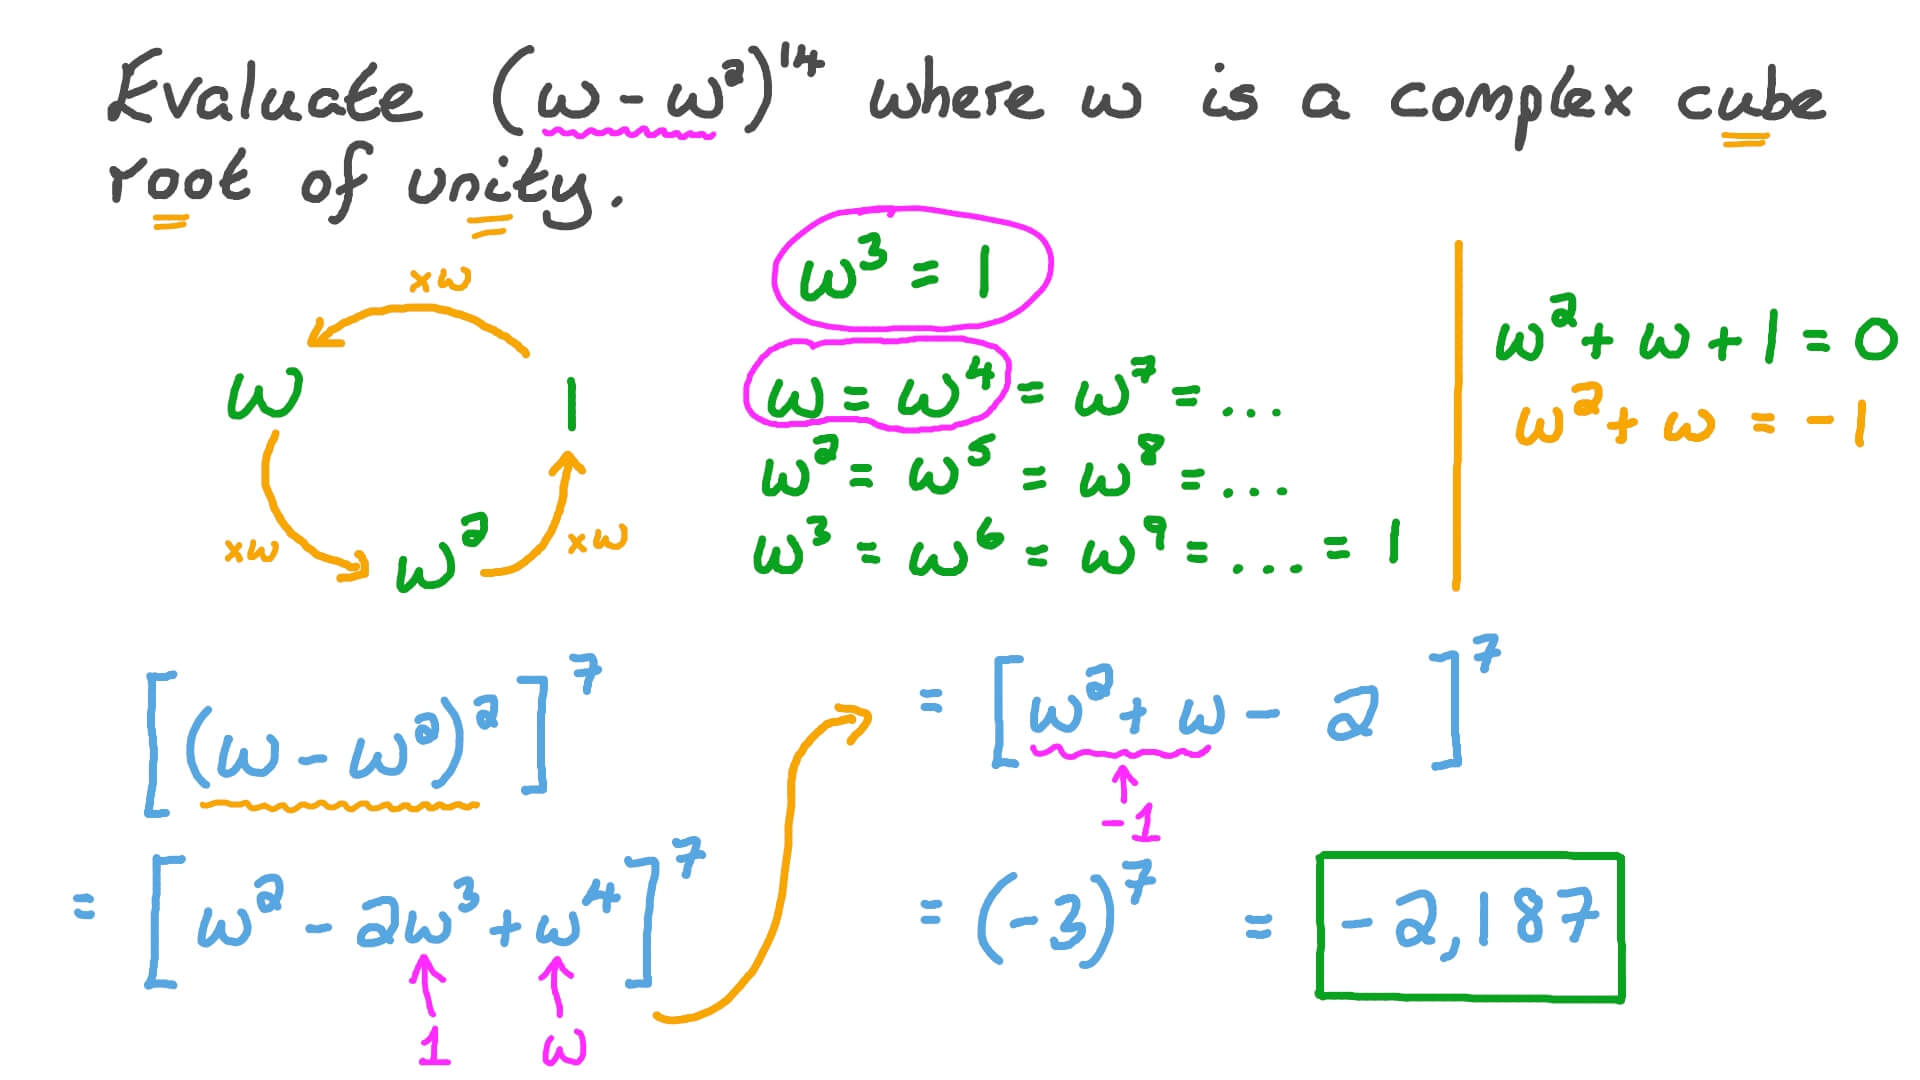 Evaluate (ω - ω²)¹⁴ where ω is a complex cube
root of unity.
×ω
ω
1
×ω
ω²
×ω
ω³ = 1
ω = ω⁴ = ω⁷ = ...
ω² = ω⁵ = ω⁸ = ...
ω³ = ω⁶ = ω⁹ = ... = 1
ω² + ω + 1 = 0
ω² + ω = -1
[(ω - ω²)²]⁷
= [ω² - 2ω³ + ω⁴]⁷
1
ω
= [ω² + ω - 2]⁷
-1
= (-3)⁷ = -2,187